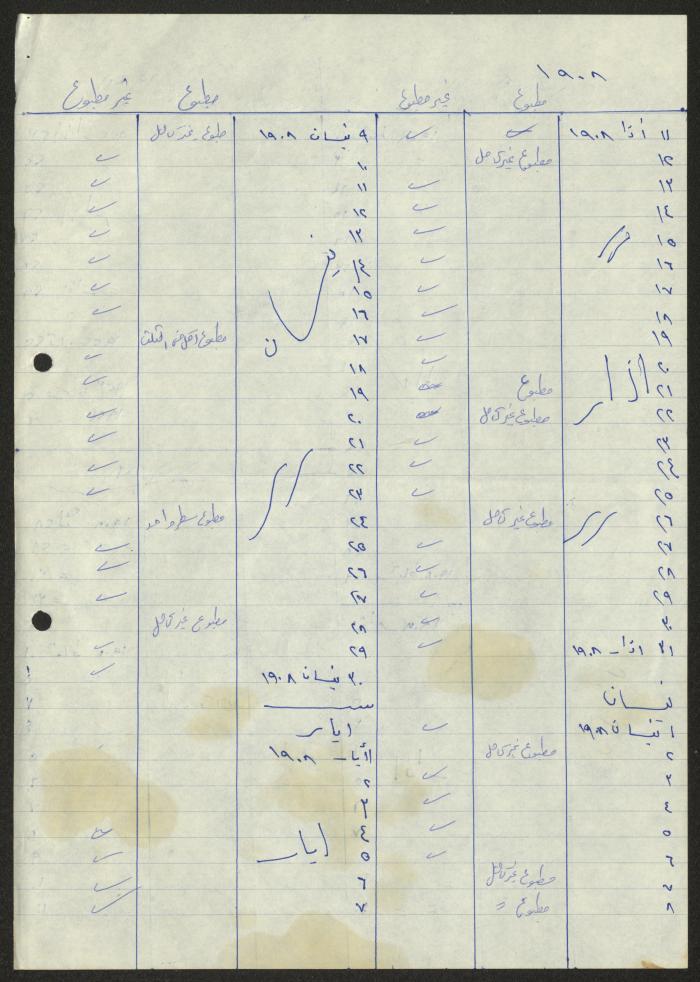 ١٩٠٨
مطبوع غير مطبوع مطبوع غير مطبوع
١١ آذار ١٩٠٨ ✓ ✓
١٢ مطبوع غير كامل
١٣ ✓
١٤ ✓
١٥ ✓
١٦ ✓
١٧ ✓
١٨ ✓
١٩ ✓
٢٠ ✓
٢١ مطبوع
٢٢ مطبوع غير كامل
٢٣ ✓
٢٤ ✓
٢٥ ✓
٢٦ مطبوع غير كامل
٢٧ ✓
٢٨ ✓
٢٩ ✓
٣٠ ✓
٣١ آذار ١٩٠٨ ✓
آذار
نيسان
١ نيسان ١٩٠٨ ✓
٢ مطبوع غير كامل
٣ ✓
٤ ✓
٥ ✓
٦ ✓
٧ مطبوع غير كامل
٨ مطبوع =
٩ نيسان ١٩٠٨ مطبوع غير كامل
١٠ ✓
١١ ✓
١٢ ✓
١٣ ✓
١٤ ✓
١٥ ✓
١٦ ✓
١٧ مطبوع اقل من الثلث
١٨ ✓
١٩ ✓
٢٠ ✓
٢١ ✓
٢٢ ✓
٢٣ ✓
٢٤ مطبوع سطر واحد
٢٥ ✓
٢٦ ✓
٢٧ ✓
٢٨ مطبوع غير كامل
٢٩ ✓
٣٠ نيسان ١٩٠٨ ✓
نيسان
ايار
١ أيار ١٩٠٨
٢
٣
٤ ✓
٥ ✓
٦ ✓
٧ ✓
ايار